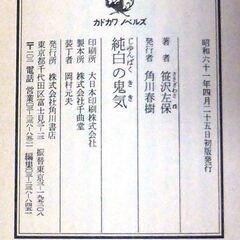 カドカワノベルズ
昭和六十一年四月二十五日初版発行
著者 笹沢左保
発行者 角川春樹
じゅんぱく きき
純白の鬼気
印刷所 大日本印刷株式会社
製本所 株式会社千曲堂
装丁者 岡村元夫
発行所 株式会社角川書店
東京都千代田区富士見二ノ十三 振替東京③一九五二〇八